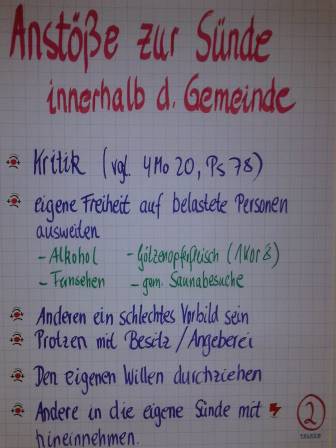 Anstöße zur Sünde
innerhalb d. Gemeinde
Kritik (vgl. 4Mo 20, Ps 78)
eigene Freiheit auf belastete Personen
ausweiten
- Alkohol - Götzenopferfleisch (1Kor 8)
- Fernsehen - gem. Saunabesuche
Anderen ein schlechtes Vorbild sein
Protzen mit Besitz / Angeberei
Den eigenen Willen durchziehen
Andere in die eigene Sünde mit
hineinnehmen.
2